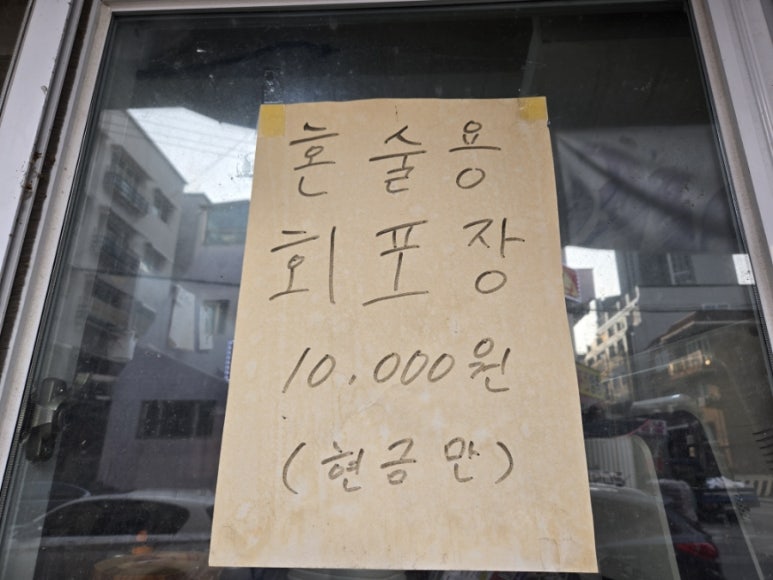 혼술용
회포장
10.000원
(현금만)